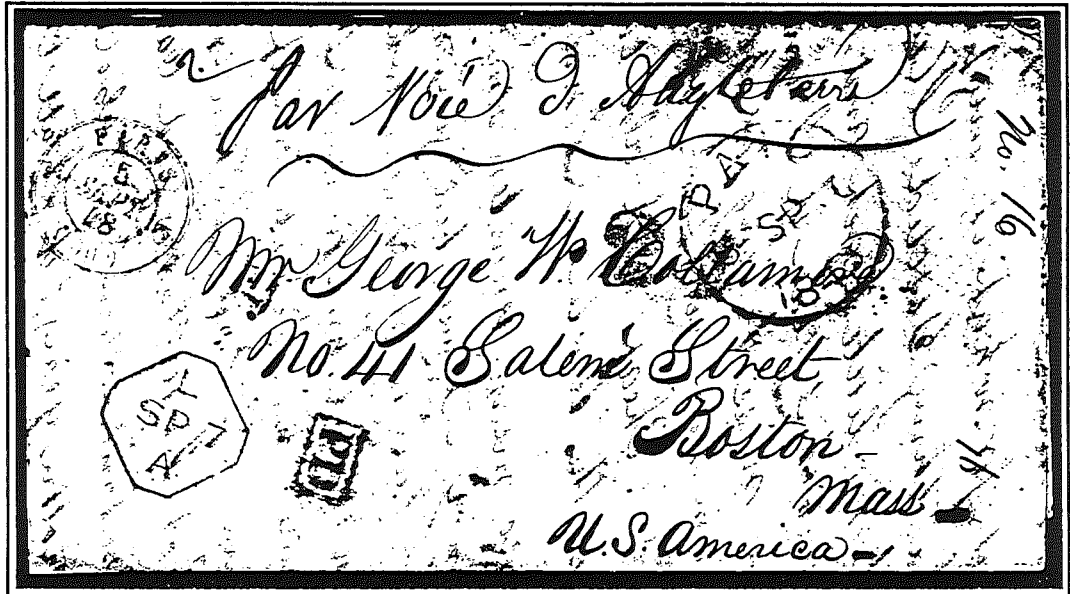 Par Voie d'Angleterre
No. 16
PARIS
5
SEPT
PA
SP
18
Mr George W.
No. 41 Salem Street
Boston
Mass
U.S. America
SP 7
A
PD